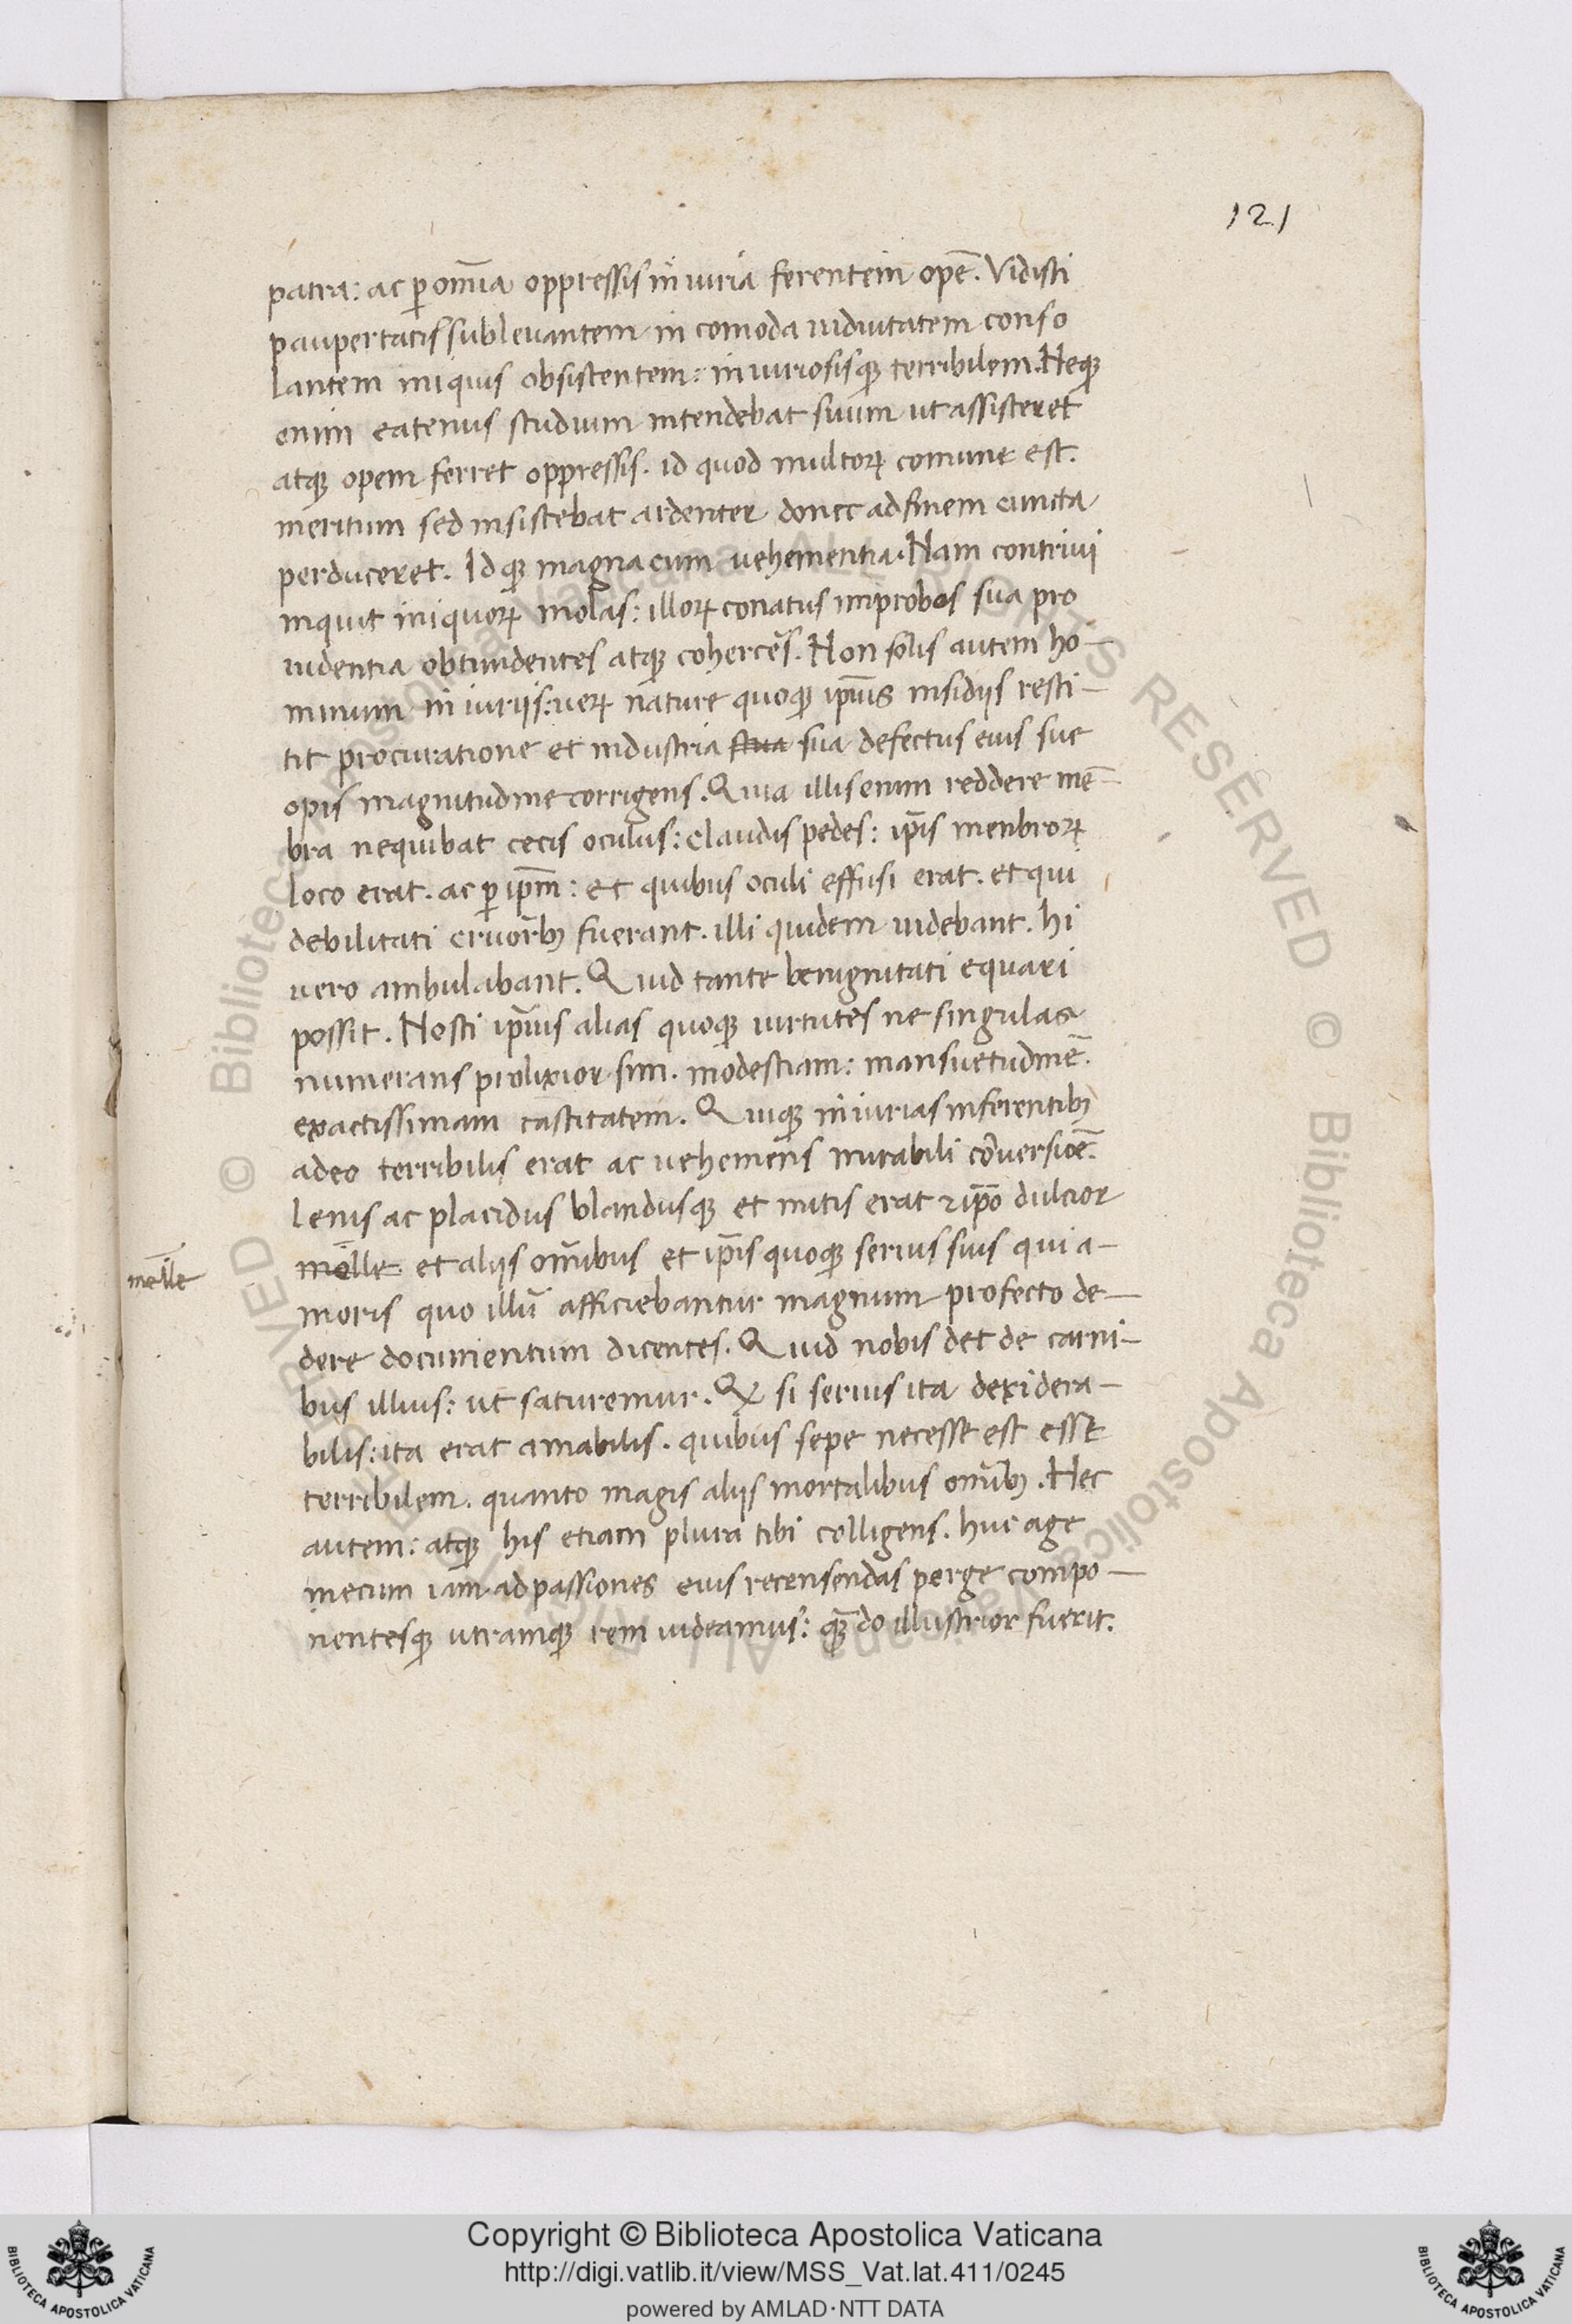 121
patria: ac ꝑ om̄ia oppressis iniuria ferentem opē. Vidisti
paupertatis sublevantem incomoda uiduitatem conso
lantem iniquis obsistentem: iniuriosisqꝫ terribilem. Neqꝫ
enim eatenus studium intendebat suum ut assisteret
atqꝫ opem ferret oppressis. id quod multoꝝ comune est.
meritum sed insistebat ardenter donec ad finem cuncta
perduceret. Idqꝫ magna cum uehementia. Nam contriui
inquit iniquoꝝ molas: illoꝝ conatus improbos sua pro
uidentia obtundentes atqꝫ cohercēs. Non solis autem ho-
minum iniuriis: ueꝝ nature quoqꝫ ip̄ius insidiis resti-
tit procuratione et industria sua sua defectus eius sue
opis magnitudine corrigens. Quia illis enim reddere mē-
bra nequibat cecis oculus: claudis pedes: ip̄is menbroꝝ
loco erat. ac ꝑ ip̄m: et quibus oculi effusi erat. et qui
debilitati cruoribꝫ fuerant. illi quidem uidebant. hi
uero ambulabant. Quid tante benignitati equari
possit. Nosti ip̄ius alias quoqꝫ uirtutes ne singulas
numerans prolixior sim. modestiam: mansuetudinē.
exactissimam castitatem. Quiqꝫ iniurias inferentibꝫ
adeo terribilis erat ac uehemens mirabili cōuersiōe.
lenis ac placidus blandusqꝫ et mitis erat ⁊ ip̄o dulcior
melle
molle et aliis om̄ibus et ip̄is quoqꝫ seruis suis qui a-
moris quo illū afficiebantur magnum profecto de-
dere documentum dicentes. Quid nobis det de carni-
bus illius: ut saturemur. Qꝫ si seruis ita dexidera-
bilis: ita erat amabilis. quibus sepe necesse est esse
terribilem. quanto magis aliis mortalibus om̄ibꝫ. Hec
autem: atqꝫ his etiam plura tibi colligens. huc age
mecum iam ad passiones eius recensendas perge compo-
nentesqꝫ utramqꝫ rem uideamus: qꝫdo illustrior fuerit.
Copyright © Biblioteca Apostolica Vaticana
http://digi.vatlib.it/view/MSS_Vat.lat.411/0245
powered by AMLAD·NTT DATA